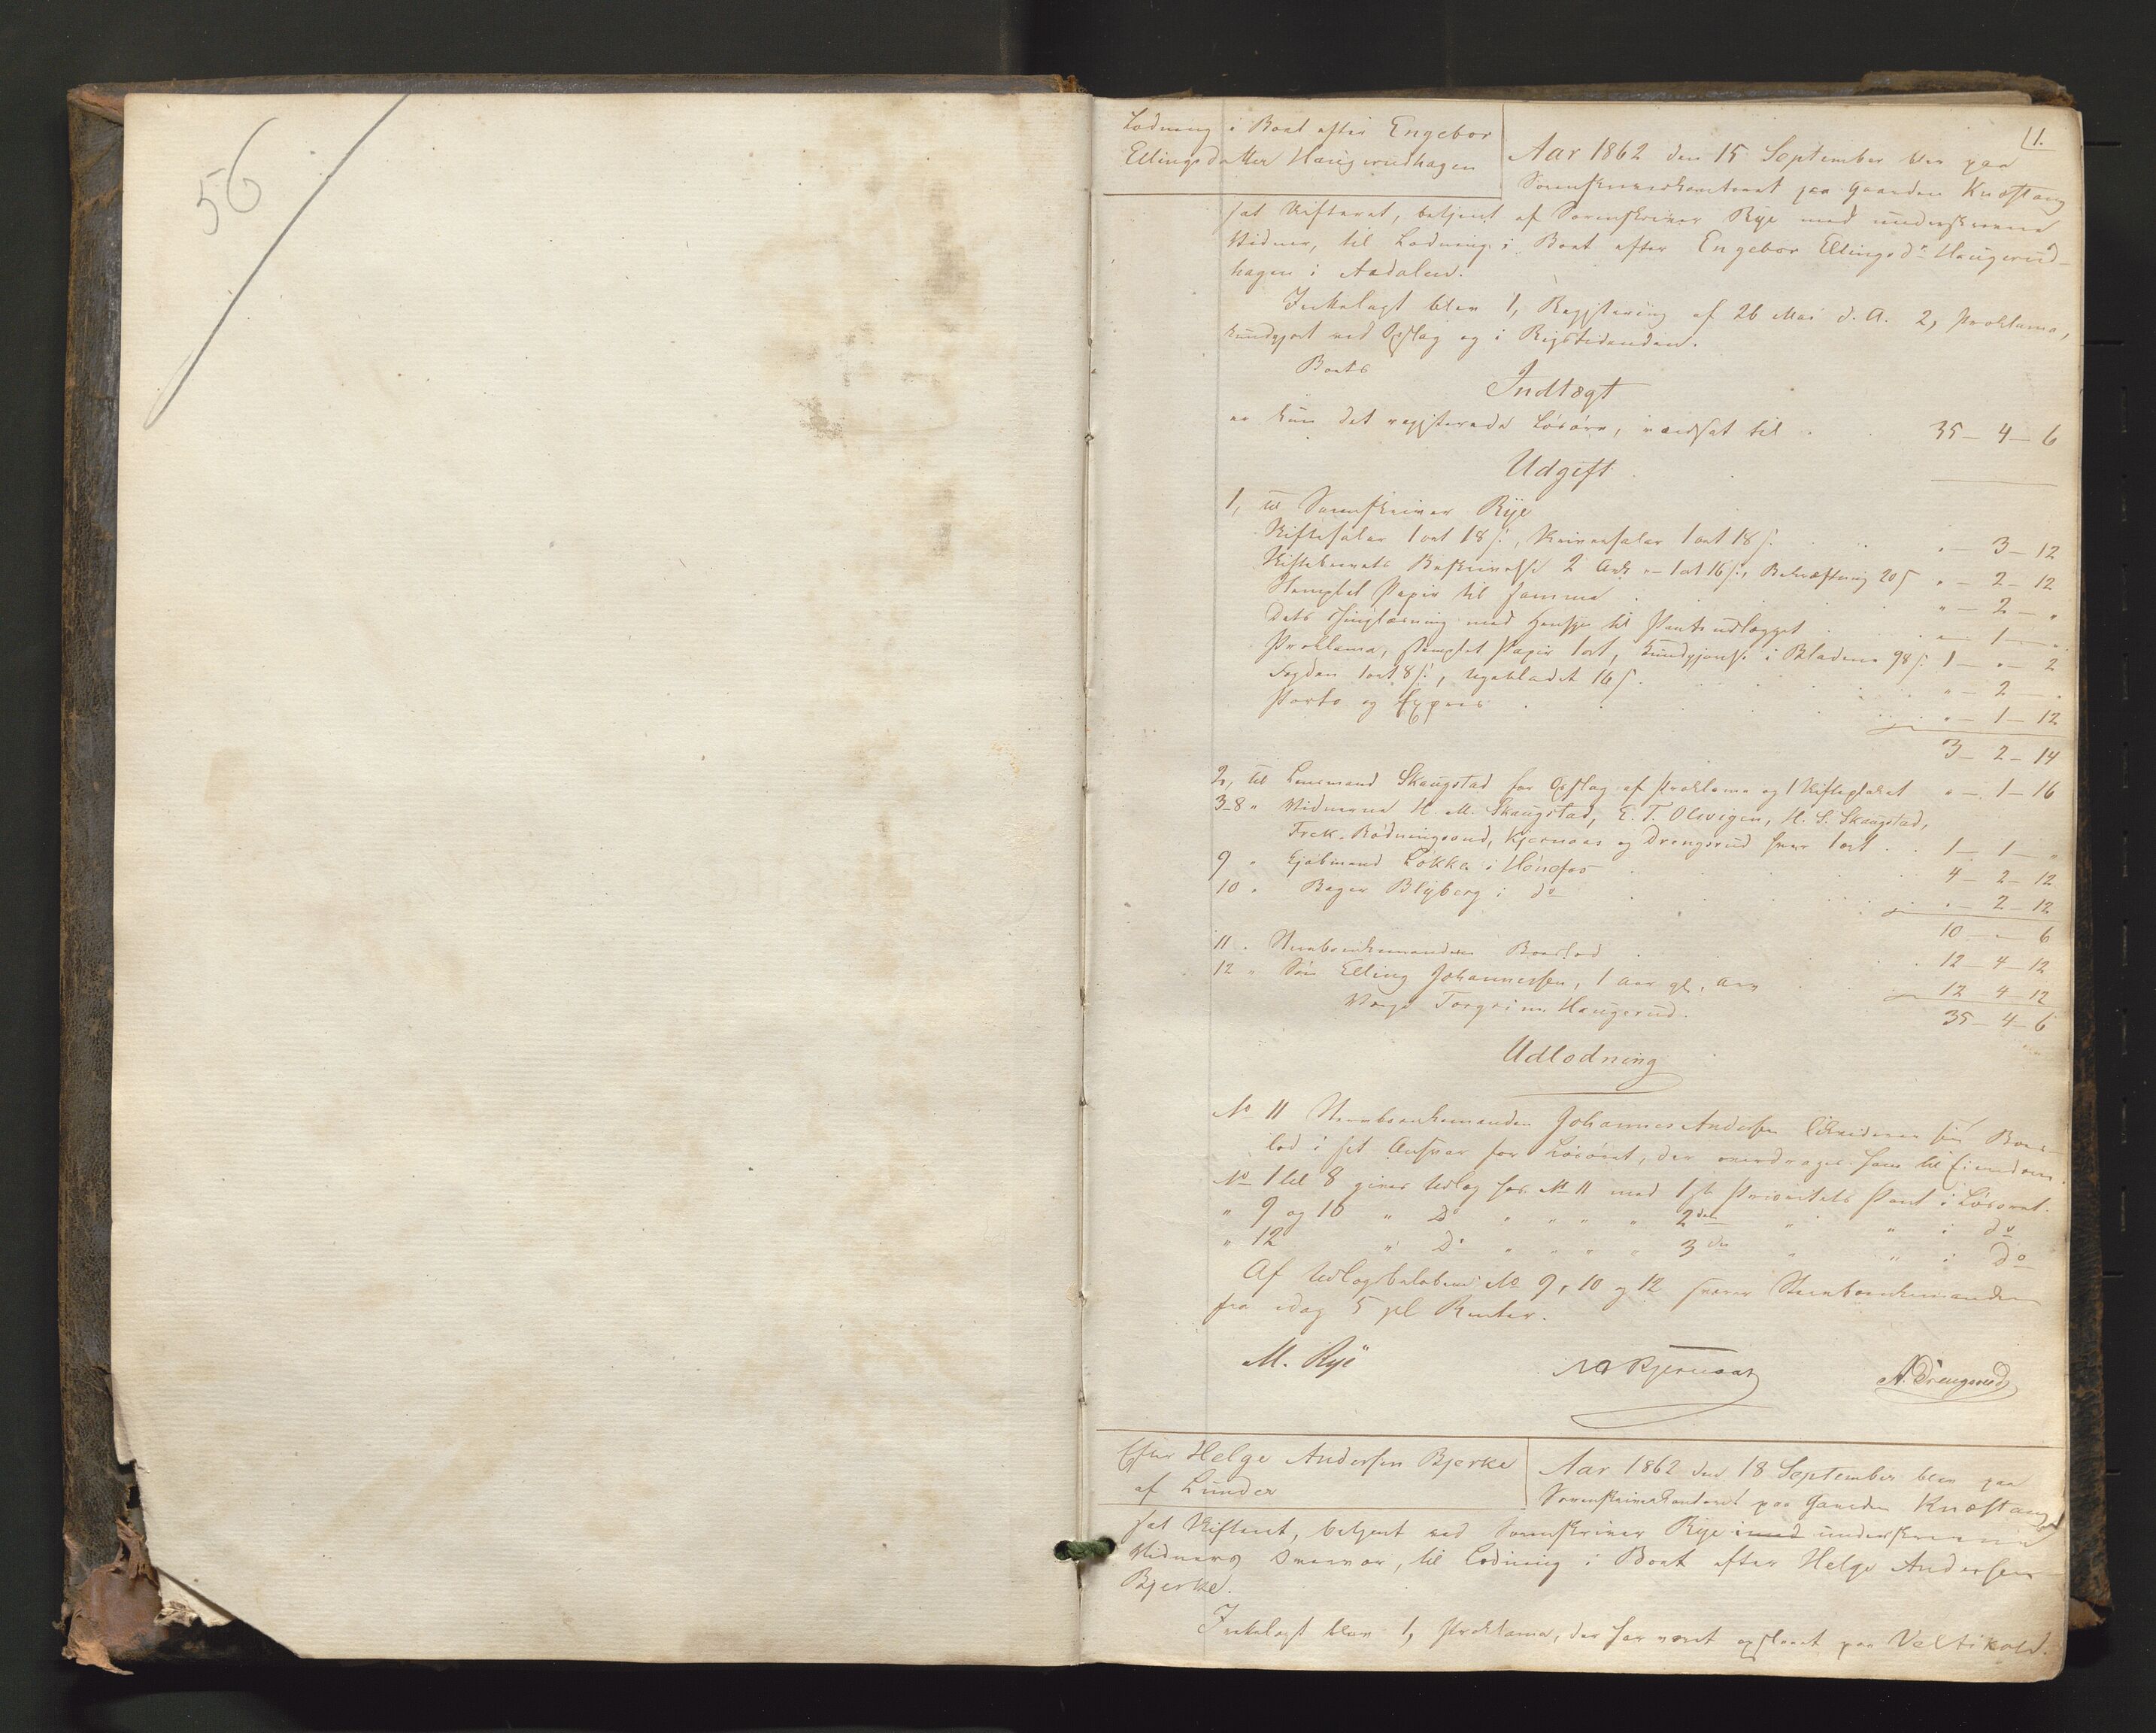 56
1.
Lodning i Boet efter Engebor
Ellingsdatter Haugerudhagen
Aar 1862 den 15 September blev paa
Sorenskriverkontoret paa Gaarden Knæstang
sat Skifteret, betjent af Sorenskriver Rye med underskrevne
Vidner, til Lodning i Boet efter Engebor Ellingsdr Haugerud-
hagen i Aadalen.
Fremlagt blev 1, Registrering af 26 Mai d. A. 2, Proklama,
kundgjort ved Opslag og i Rigstidenden.
Boets
Indtægt
er kun det registrerede Løsøre, værdsat til . 35 - 4 - 6
Udgift
1, til Sorenskriver Rye
Skiftesalær 1 ort 18 s., Skriversalær 1 ort 18 s. . . " - 3 - 12
Skiftebrevets Beskrivelse 2 Ark - 1 ort 16 s., Bekræftning 20 s " - 2 - 12
Stemplet Papir til samme . . . " - 2 - "
Dets Thinglæsning med Hensyn til Panteudlægget . . " - 1 - "
Proklama, stemplet Papir 1 ort, Kundgjørelse i Bladene 98 s. 1 - " - 2
Fogden 1 ort 8 s., Ugebladet 16 s. . . . " - 2 - "
Porto og Expres . . . " - 1 - 12
3 - 2 - 14
2, til Lensmand Skaugstad for Opslag af Proklama og 1 Skifteplakat " - 1 - 16
3-8 " Vidnerne H. M. Skaugstad, E. T. Olevigen, H. S. Skaugstad,
Frek. Rødningsand, Kjernaas og Drengsrud hver 1 ort . . 1 - 1 - "
9 " Kjøbmand Løkke i Hønefos . . . 4 - 2 - 12
10 " Bager Blyberg i do . . . " - 2 - 12
10 - " - 6
11 " Stervboenkemandens Boeslod . . . 12 - 4 - 12
12 " Søn Elling Johannessen, 1 Aar gl., Arv . . 12 4 - 12
Værge Torgrim Haugerud. 35 - 4 - 6
Udlodning
No 11 Stervboenkemanden Johannes Andersen likviderer sin Boes-
lod i sit Ansvar for Løsøret, der overdrages ham til Eiendom.
No 1 til 8 gives Udlæg hos No 11 med 1ste Prioritets Pant i Løsøret.
" 9 og 10 " Do " " " " 2den " " i do
" 12 " Do " " " " 3die " " i do
Af Udlægsbeløbene No 9, 10 og 12 svarer Stervboenkemanden
fra idag 5 pCt Renter.
M. Rye
Kjernaas
A. Drengsrud
Efter Helge Andersen Bjerke
af Lunder
Aar 1862 den 18 September blev paa
Sorenskriverkontoret paa Gaarden Knæstang
sat Skifteret, betjent ved Sorenskriver Rye med underskrevne
Vidner, til Lodning i Boet efter Helge Andersen
Bjerke.
Fremlagt blev 1, Proklama, der har været opslaaet paa Veltikold.